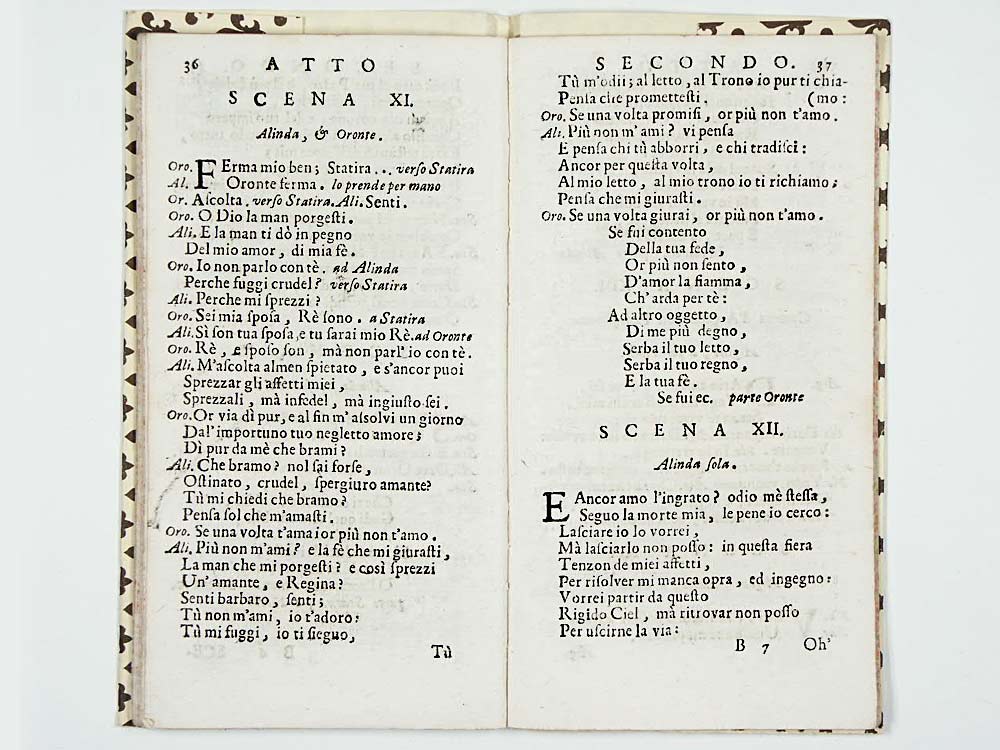 36 ATTO
SCENA XI.
Alinda, & Oronte.
Oro. FErma mio ben; Statira... verſo Statira
Al. Oronte ferma. lo prende per mano
Or. Aſcolta. verſo Statira. Ali. Senti.
Oro. O Dio la man porgeſti.
Ali. E la man ti dò in pegno
Del mio amor, di mia fè.
Oro. Io non parlo con tè. ad Alinda
Perche fuggi crudel? verſo Statira
Ali. Perche mi ſprezzi?
Oro. Sei mia ſpoſa, Rè ſono. a Statira
Ali. Sì ſon tua ſpoſa, e tu ſarai mio Rè. ad Oronte
Oro. Rè, e ſpoſo ſon, mà non parl' io con tè.
Ali. M'aſcolta almen ſpietato, e s'ancor puoi
Sprezzar gli affetti miei,
Sprezzali, mà infedel, mà ingiuſto ſei.
Oro. Or via dì pur, e al fin m' aſſolvi un giorno
Dal' importuno tuo negletto amore;
Dì pur da mè che brami?
Ali. Che bramo? nol ſai forſe,
Oſtinato, crudel, ſpergiuro amante?
Tù mi chiedi che bramo?
Penſa ſol che m'amaſti.
Oro. Se una volta t'amai or più non t'amo.
Ali. Più non m'ami? e la fè che mi giuraſti,
La man che mi porgeſti? e così ſprezzi
Un' amante, e Regina?
Senti barbaro, ſenti;
Tù non m'ami, io t'adoro:
Tù mi fuggi, io ti ſieguo,
Tù
SECONDO. 37
Tù m'odii; al letto, al Trono io pur ti chia-
Penſa che prometteſti. (mo:
Oro. Se una volta promiſi, or più non t'amo.
Ali. Più non m' ami? vi penſa
E penſa chi tù abborri, e chi tradiſci:
Ancor per queſta volta,
Al mio letto, al mio trono io ti richiamo;
Penſa che mi giuraſti.
Oro. Se una volta giurai, or più non t'amo.
Se fui contento
Della tua fede,
Or più non ſento,
D'amor la fiamma,
Ch' arda per tè:
Ad altro oggetto,
Di me più degno,
Serba il tuo letto,
Serba il tuo regno,
E la tua fè.
Se fui ec. parte Oronte
SCENA XII.
Alinda ſola.
E Ancor amo l'ingrato? odio mè ſteſſa,
Seguo la morte mia, le pene io cerco:
Laſciare io lo vorrei,
Mà laſciarlo non poſſo: in queſta fiera
Tenzon de miei affetti,
Per riſolver mi manca opra, ed ingegno:
Vorrei partir da queſto
Rigido Ciel, mà ritrovar non poſſo
Per uſcirne la via:
B 7 Oh'